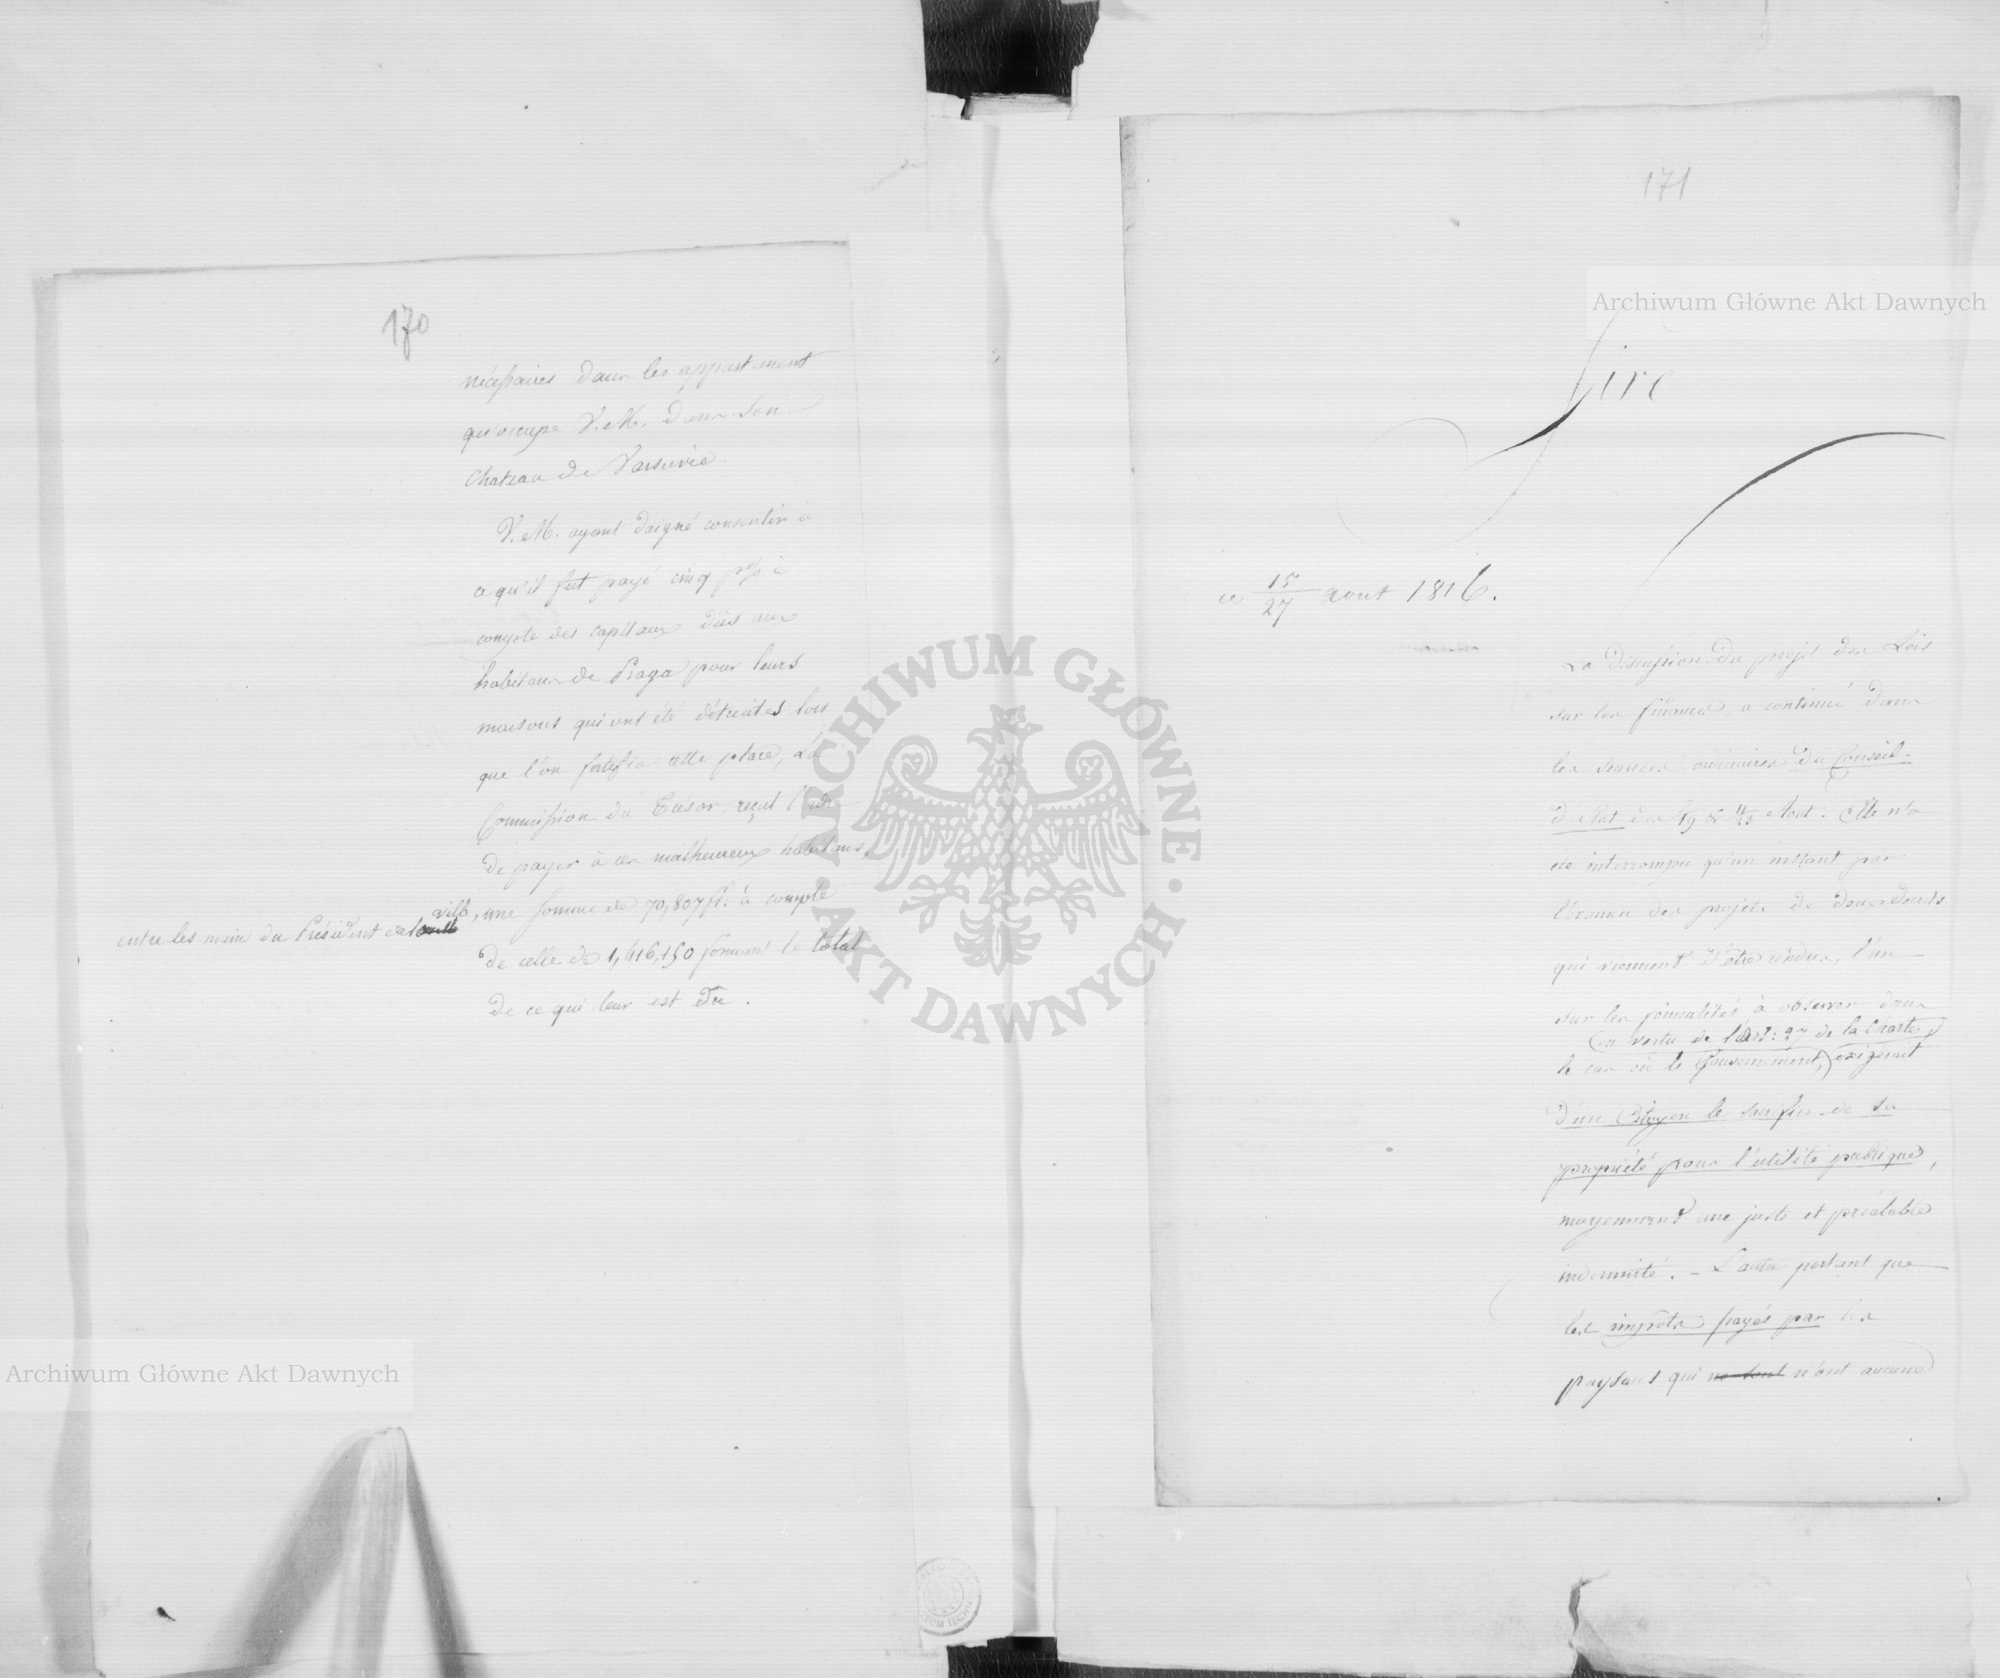 170
nécessaires dans les appartement
qu'occupe V. M. dans son
Chateau de Varsovie.
V. M. ayant daigné consentir à
ce qu'il fut payé cinq p% à
compte des capitaux dûs aux
habitans de Praga pour leurs
maisons qui ont été détruites lors
que l'on fortifia cette place, La
Commission du Trésor reçut l'ordre
de payer à ces malheureux habitans,
entre les mains du Président de la ville,
une somme de 70,807 fl: à compte
de celle de 1,416,150 formant le total
de ce qui leur est dû.
171
Sire
ce 15/27 aout 1816.
La discussion du projet des Lois
sur les finances, a continué dans
les séances ordinaires du Conseil
d'Etat des 7/19 & 11/23 Aout. Elle n'a
été interrompu qu'un instant par
l'examen des projets de deux
qui viennent d'être rendus, l'un
sur les formalités à observer dans
(en vertu de l'Art: 27 de la Charte)
le cas où le Gouvernement, exigerait
d'un Citoyen le sacrifice de sa
propriété pour l'utilité publique,
moyennant une juste et préalable
indemnité. - L'autre portant que
les impôts payés par les
paysans qui ne sont n'ont aucune
Archiwum Główne Akt Dawnych
Archiwum Główne Akt Dawnych
ARCHIWUM GŁÓWNE
AKT DAWNYCH